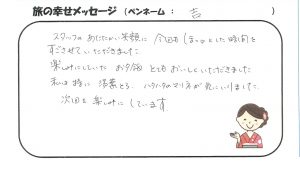 旅の幸せメッセージ（ペンネーム： 吉 ）
スタッフのあたたかい笑顔に 今回も ほっとした時間を
すごさせていただきました
楽しみにしていた お夕飯 とてもおいしくいただきました
私は特に 茶わんむし、ハタハタのマリネが気にいりました。
次回も楽しみにしています